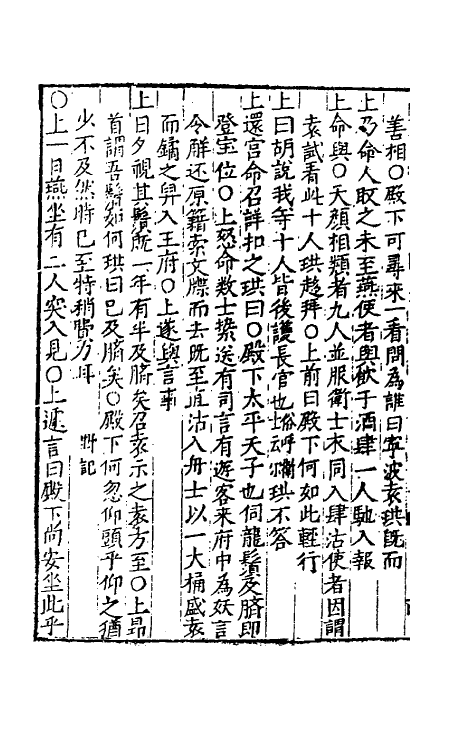 善相○殿下可尋來一看問為誰曰寧波袁珙旣而
上乃命人取之未至燕使者與飲于酒肆一人馳入報
上命與○天顔相類者九人並服衛士衣同入肆沽使者因謂
袁試看此十人珙趍拜○上前曰殿下何如此輕行
上曰胡說我等十人皆後護長官也珙不答
上還宮命召詳扣之珙曰○殿下太平天子也伺龍鬚及臍即
登宝位○上怒命数士擒送有司言有遊客来府中為妖言
令觧还原籍索文牒而去既至直沽入舟士以一大桶盛袁
而鐍之舁入王府○上遂與言事
上日夕視其鬚旣一年有半及臍矣召袁示之袁方至○上昻
首謂吾鬚如何珙曰已及臍矣○殿下何忽仰頭乎仰之猶
少不及然時已至特稍費力耳
○上一日燕坐有二人突入見○上遽言曰殿下尚安坐此乎